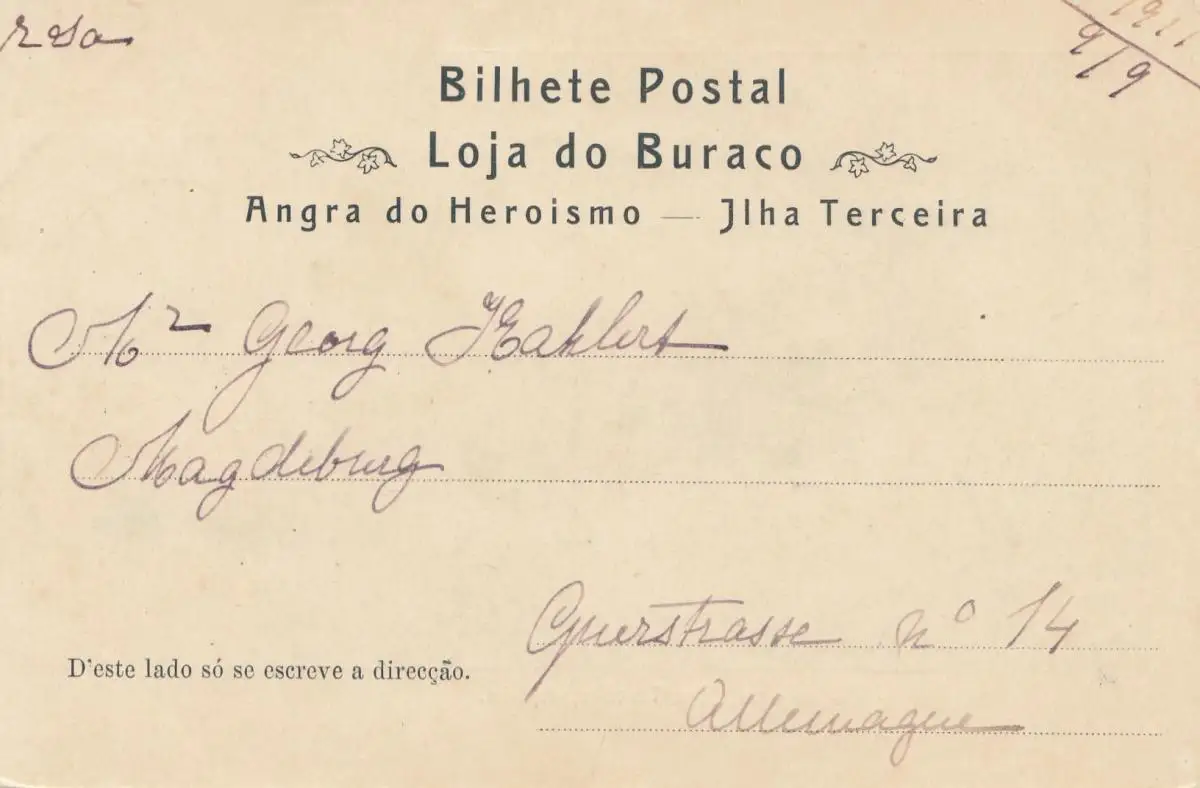 Bilhete Postal
Loja do Buraco
Angra do Heroismo — Jlha Terceira
9/9
Mr Georg
Magdeburg
nº 14
D'este lado só se escreve a direcção.
Allemagne